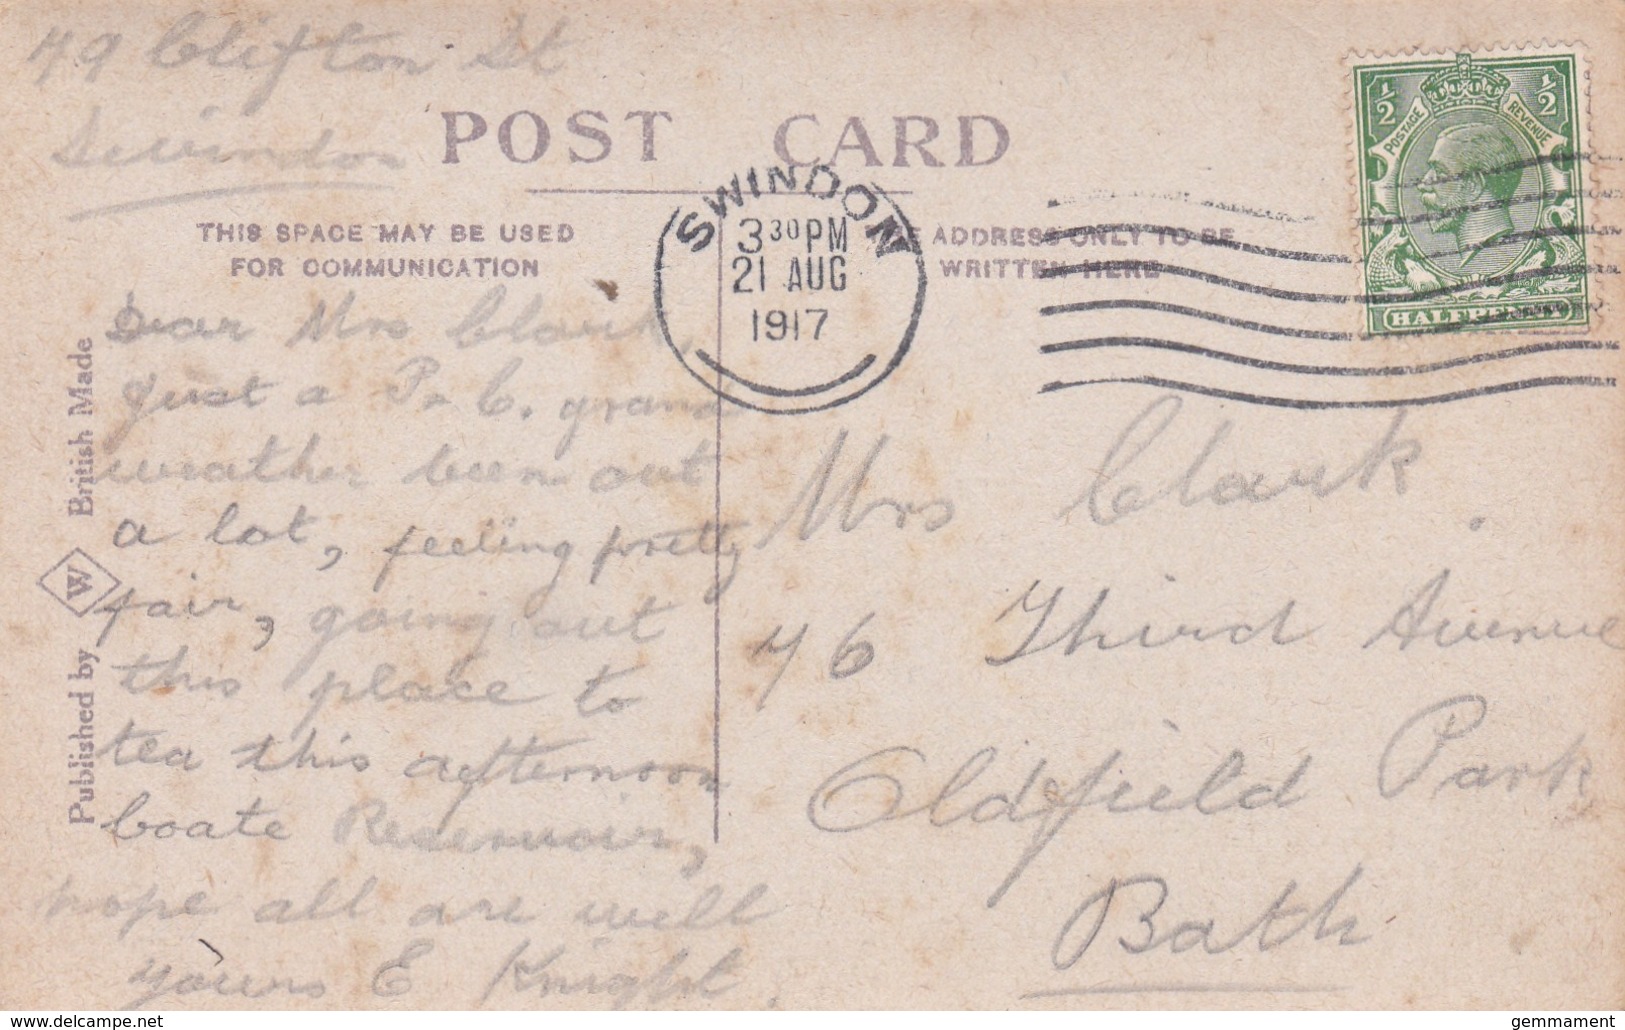 79 Clifton St
Swindon
POST CARD
THIS SPACE MAY BE USED
FOR COMMUNICATION
ADDRESS ONLY TO BE
WRITTEN HERE
SWINDON
3 30 PM
21 AUG
1917
½ ½
POSTAGE REVENUE
HALFPENNY
Dear Mrs Clark,
Just a P. C. grand
weather been out
a lot, feeling pretty
fair, going out
this place to
tea this afternoon
Coate Reservoir,
hope all are well
yours E Knight.
Mrs Clark.
76 Third Avenue
Oldfield Park
Bath
Published by W British Made
www.delcampe.net
gemmament